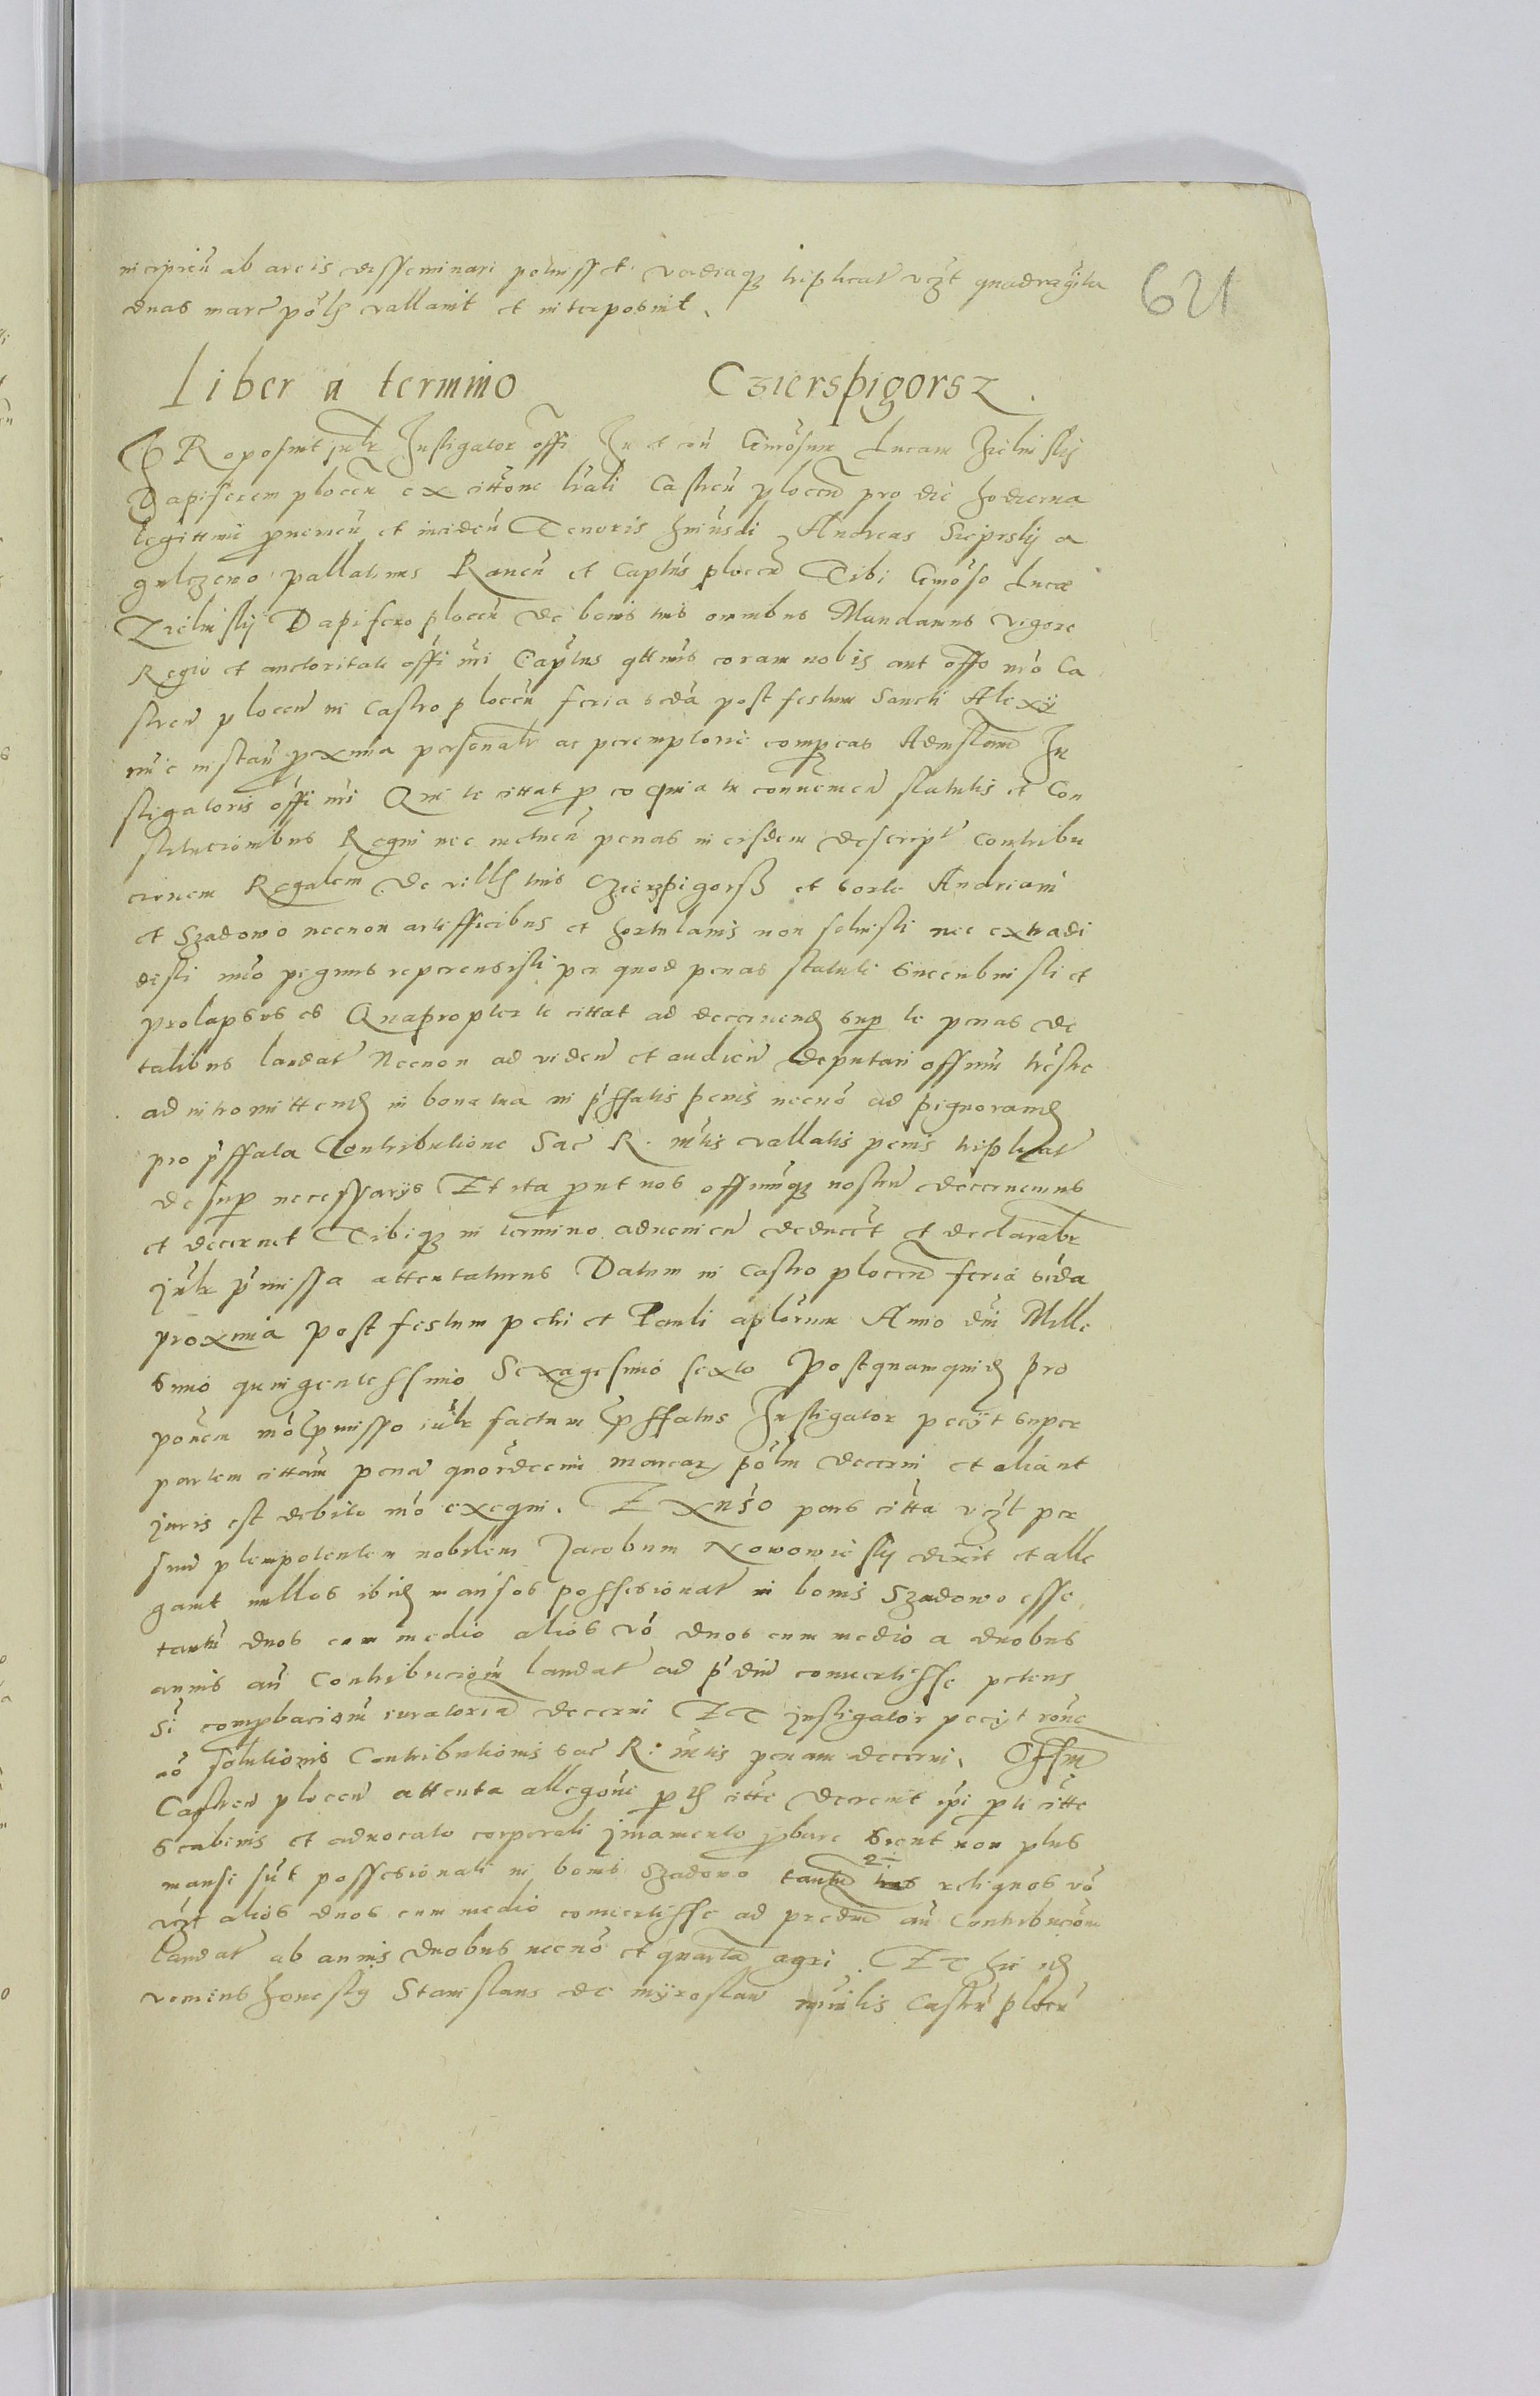 nicipieũ ab areis disseminari potuisset vadiaqȝ triplicat vȝt quadragĩta
duas marc põlʒ vallavit et interposuit.
621
Liber a termino Czierspigorsz.
PRoposuit iudr Instigator offi In et con Genõsum Lucam Zielinskij
Dapiferem plocen ex cittõne lrali Castren plocen pro die hodierna
legittime prouenieñ et incideñ Tenoris huiusdi Andreas Sieprskij a
gulczewo pallatinus Raueñ et Captñs plocen Tibi Genõso Lucæ
Zielinskij Dapifero plocen de bonis tuis omnibus Mandamus vigore
Regio et auctoritate offi nri Captus qttnus coram nobis aut offo nro Ca
stren plocen in Castro plocen feria scda post festum Sancti Alexij
nũc instañ proxima personalr ac peremptorie compareas Ad instam In
stigatoris offi nri Qui te cittat pro eo quia tu contrauenien statutis et Con
stitucionibus Regni nec metueñ penas in eisdem descript contribu
cionem Regalem de villʒ tuis Czierzpigorß et sorte Andriani
et Szadowo necnon artifficibus et hortulanis non soluisti nec extradi
disti imo pignus repercusisti per quod penas statuti succubuisti et
prolapsus es Quapropter te cittat ad decernendʒ sup te penas de
talibus laudat Necnon ad viden et audien deputari offium trestre
ad intromittendʒ in bona tua in pffatis penis necnõ ad pignorandʒ
pro pffata Contributione Sac R. mtis vallatis penis triplicat
desup necessarijs Et ita prout nos offiumqȝ nostrũ decernemus
et decernet Tibiqȝ in termino adueniẽn deducet et declarabr
iudr pmissa attentaturus Datum in Castro plocen feria scda
proxima post festum petri et Pauli aplorum Anno dni Mille
simo quingentessimo Sexagesimo sexto Postquamquidʒ pro
ponem mõ pmisso iudr factum pffatus Instigator pecijt super
partem cittam penã quordecim marcar polm decerni et aliã ut
juris est debito mõ exequi. Exnso pars citta vȝt per
suũ plenipotentem nobilem Jacobum Nowowieskij dixit et alle
gauit nullos ibidʒ mansos possesionat in bonis Szadowo esse
tantũ duos cum medio alios vo duos cum medio a duobus
annis añ Contribucionm laudat ad pdiũ conuertisse petens
si comprobacionm iuratoria decerni Et instigator pecijt rone
nõ solutionis Contributionis sac R. mtis penam decerni. Offm
Castren plocen attenta allegõne prtʒ citte decreuit ipi prti citte
scabinis et aduocato corporali juramento probare Sicut non plus
mansi sũt possesionati in bonis Szadowo tantũ 2½ reliquos vo
vȝt alios duos cum medio conuertisse ad prediũ añ Contribuciõm
laudat ab annis duobus necnõ et quarta agri. Et hic idʒ
veniens honestus Stanislaus de mijroslaw mnilis Castrñ plocen